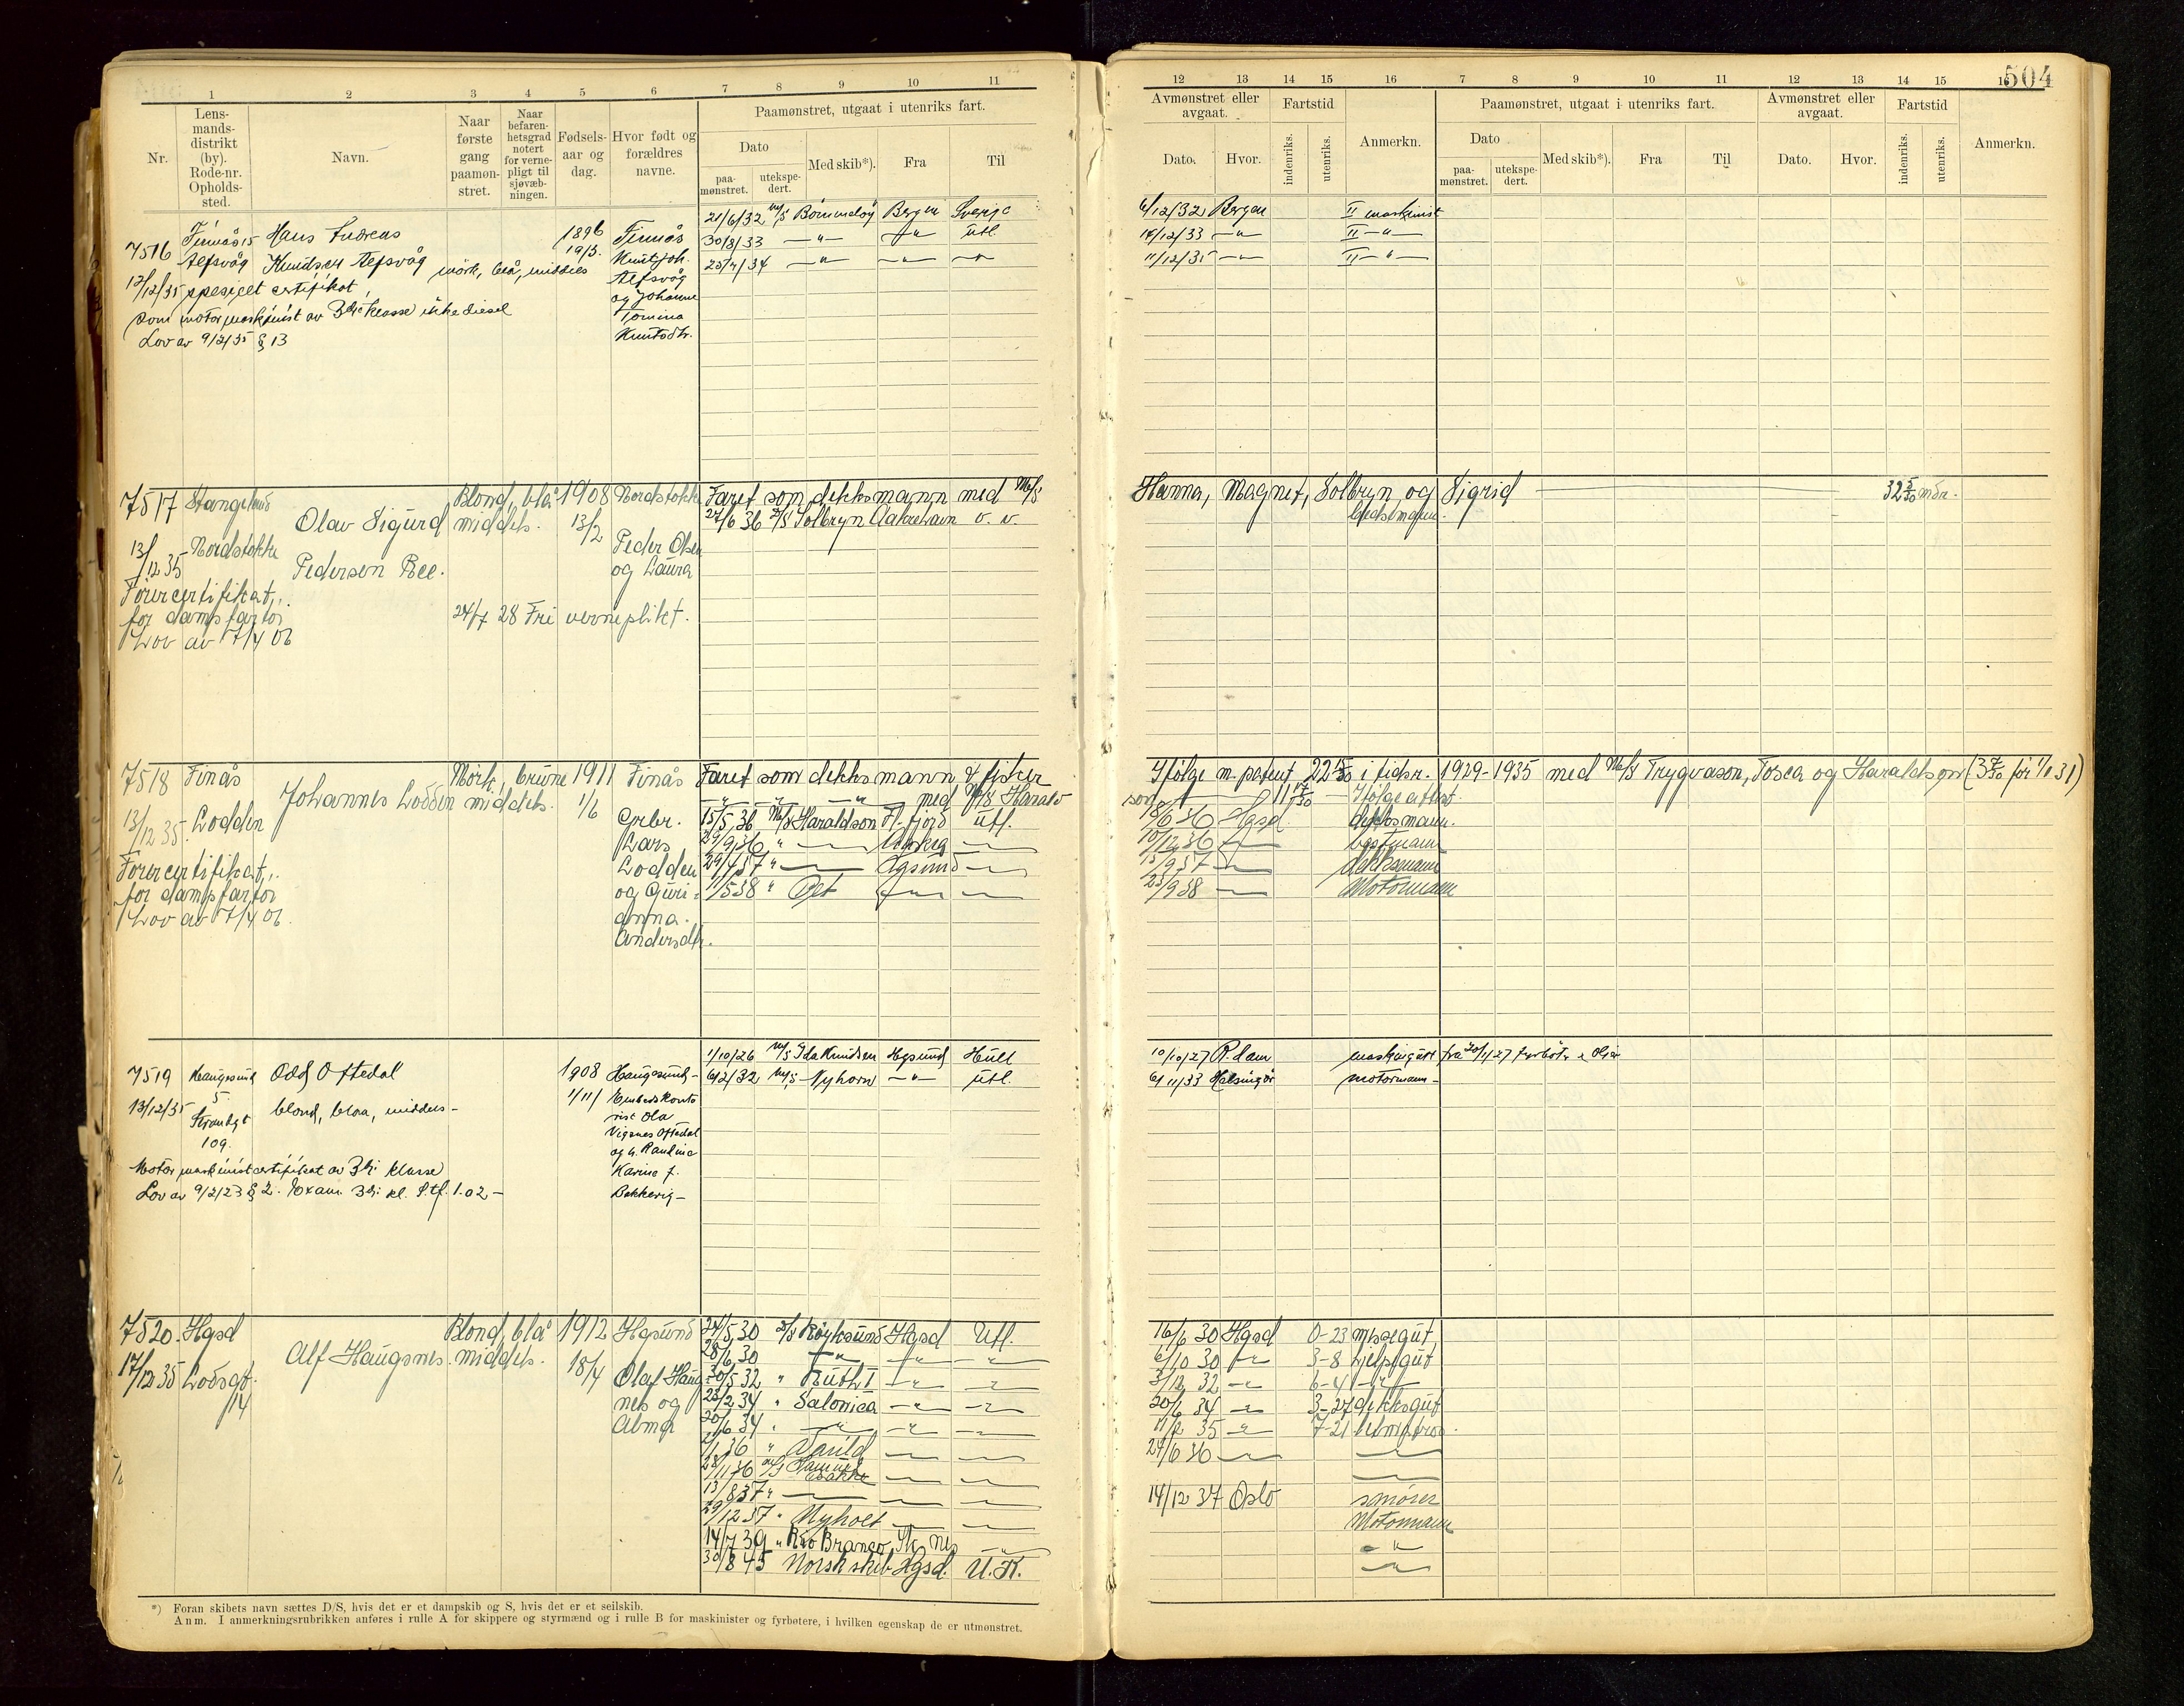 504
1 2 3 4 5 6 7 8 9 10 11
12 13 14 15 16 7 8 9 10 11 12 13 14 15 16
Nr.
Lens-
mands-
distrikt
(by).
Rode-nr.
Opholds-
sted.
Navn.
Naar
første
gang
paamøn-
stret.
Naar
befaren-
hetsgrad
notert
for verne-
pligt til
sjøvæb-
ningen.
Fødsels-
aar og
dag.
Hvor født og
forældres
navne.
Paamønstret, utgaat i utenriks fart.
Dato
paa-
mønstret.
utekspe-
dert.
Med skib*).
Fra
Til
Avmønstret eller
avgaat.
Dato.
Hvor.
Fartstid
indenriks.
utenriks.
Anmerkn.
Paamønstret, utgaat i utenriks fart.
Dato
paa-
mønstret.
utekspe-
dert.
Med skib*).
Fra
Til
Avmønstret eller
avgaat.
Dato.
Hvor.
Fartstid
indenriks.
utenriks.
Anmerkn.
7516
Finnås 15
Hans Andreas
Knudsen
1896
19/3.
Finnås
Knut Joh.
og Johanne
Tomina
Knutsdtr.
mörk, blå, middels
13/12/35 spesielt certifikat
som motormaskinist av 3die klasse ikke diesel
Lov av 9/2/35 § 13
21/6/32 m/s Bömmelöy Bergen Sverige
30/8/33 — " — — " — utl.
6/12/32 Bergen II maskinist
14/12/33 — " — II — " —
11/12/35 — " — II — " —
7517 Stangeland
Nordstokke
Olav Sigurd
Pedersen Ree.
Blond, blå
middels.
1908
13/2
Nordstokke
Peder Olsen
og Laura
13/12 35
Förercertifikat,
for dampfartöi
Lov av 17/4 06
24/7 28 Fri verneplikt.
Faret som dekksmann med M/S
Hanna, Magnet, Solbryn og Sigrid
32 5/30 mdr.
27/6 36 Solbryn Aakrehavn
7518 Finås
Lodden
Johannes Lodden
Mörk, brune
middels.
1911
1/6
Finås
Grbr.
Lars
Lodden
og Guri-
anna.
Andersdtr.
13/12 35.
Förercertifikat,
for dampfartöi
Lov av 17/4 06.
Faret som dekksmann & fisker
med M/S Harald
son
Ifölge m. patent 22 15/30 i tidsr. 1929-1935 med M/S Trygvason, Tosca og Haraldson
Ifölge attest.
15/5 36 M/S Haraldson Fl. fjord utl.
18/6 36 Hgsd. dekksmann.
29/9 36
10/12 36 bestmann
29/4 37 Hgsund
15/9 37 dekksmann
11/5 38
23/9 38 Motormann
7519 Haugesund
5
Strandgt
109.
Odd Oftedal
blond, blaa, middels-
1908
1/11
Haugesund-
rist Ola
Vigsnes Oftedal
Karine f.
Bekkevig-
13/12/35
Motormaskinistcertifikat av 3die klasse
Lov av 9/2/23 § 2. Exam. 3die kl.
1/10/26 m/s Ida Knudsen Hgsund Hull
6/2/32 m/s Nyhorn — " — utl.
10/10/27 R.dam
6/11/33 Helsingör motormann-
7520. Hgsd
Lodsgt.
14
Alf Haugsnes.
Blond, blå
middels.
1912
18/4
Hgsund
Olaf Haug-
nes og
Alma
17/12 35
24/5 30 Röyksund Hgsd Utl.
28/6 30
30/5 32 " Ruth I
23/2 34 " Salonica
20/6 34
1/1 36
28/11 36
13/8 37
29/12 37 " Nyholt
14/7 39 " Rio Branco
30/8 45 Norsk skib Hgsd. U.K.
16/6 30 Hgsd 0-23 messegut
6/10 30 3-8 hjelpsgut
3/12 32 6-4
20/6 34 3-27 dekksgut
11/2 35 7-21
24/6 36
14/12 37 Oslo smörer
Motormann
*) Foran skibets navn sættes D/S, hvis det er et dampskib og S, hvis det er et seilskib.
Anm. I anmerkningsrubrikken anføres i rulle A for skippere og styrmænd og i rulle B for maskinister og fyrbøtere, i hvilken egenskap de er utmønstret.